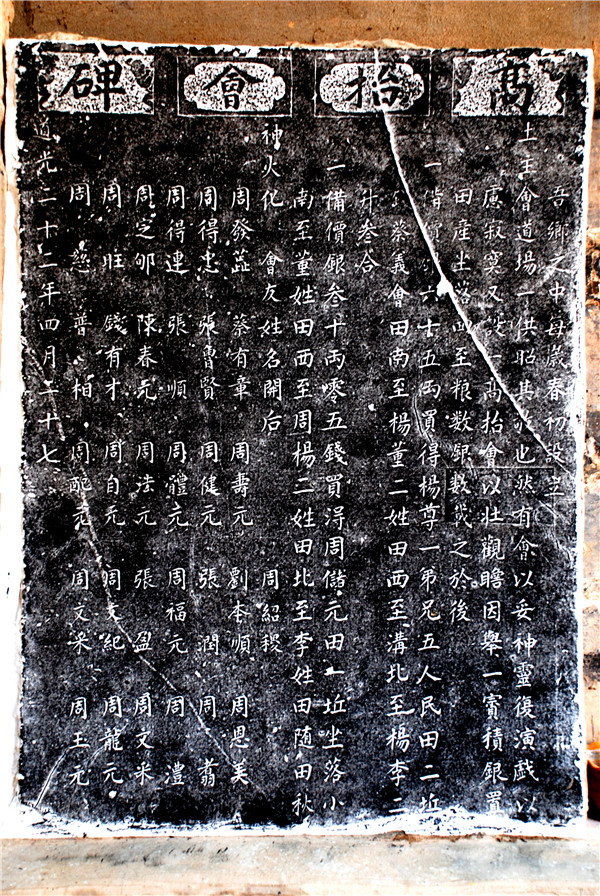 高抬會碑
吾鄉之中每歲春初設立
土主會道場一供昭其敬也然有會以妥神靈復演戲以
慮寂寞又設一高抬會以壯觀瞻因舉一賓積銀置
田産坐落四至粮数銀数載之於後
一備價銀六十五両買得楊尊一弟兄五人民田二坵
蔡義會田南至楊董二姓田西至溝北至楊李二
升叁合
一備價銀叁十両零五錢買淂周儲元田一坵坐落小
南至董姓田西至周楊二姓田北至李姓田随田秋
神火化 會友姓名開后 周紹稷
周發蕋 蔡有章 周壽元 劉本順 周恩美
周得忠 張曹賢 周健元 張潤 周翥
周得連 張順 周體元 周福元 周澧
周定邠 陳春元 周法元 張盈 周文采
周旺 錢有才 周自元 周文紀 周龍元
周慈 普相 周配元 周文采 周玉元
道光二十二年四月二十七